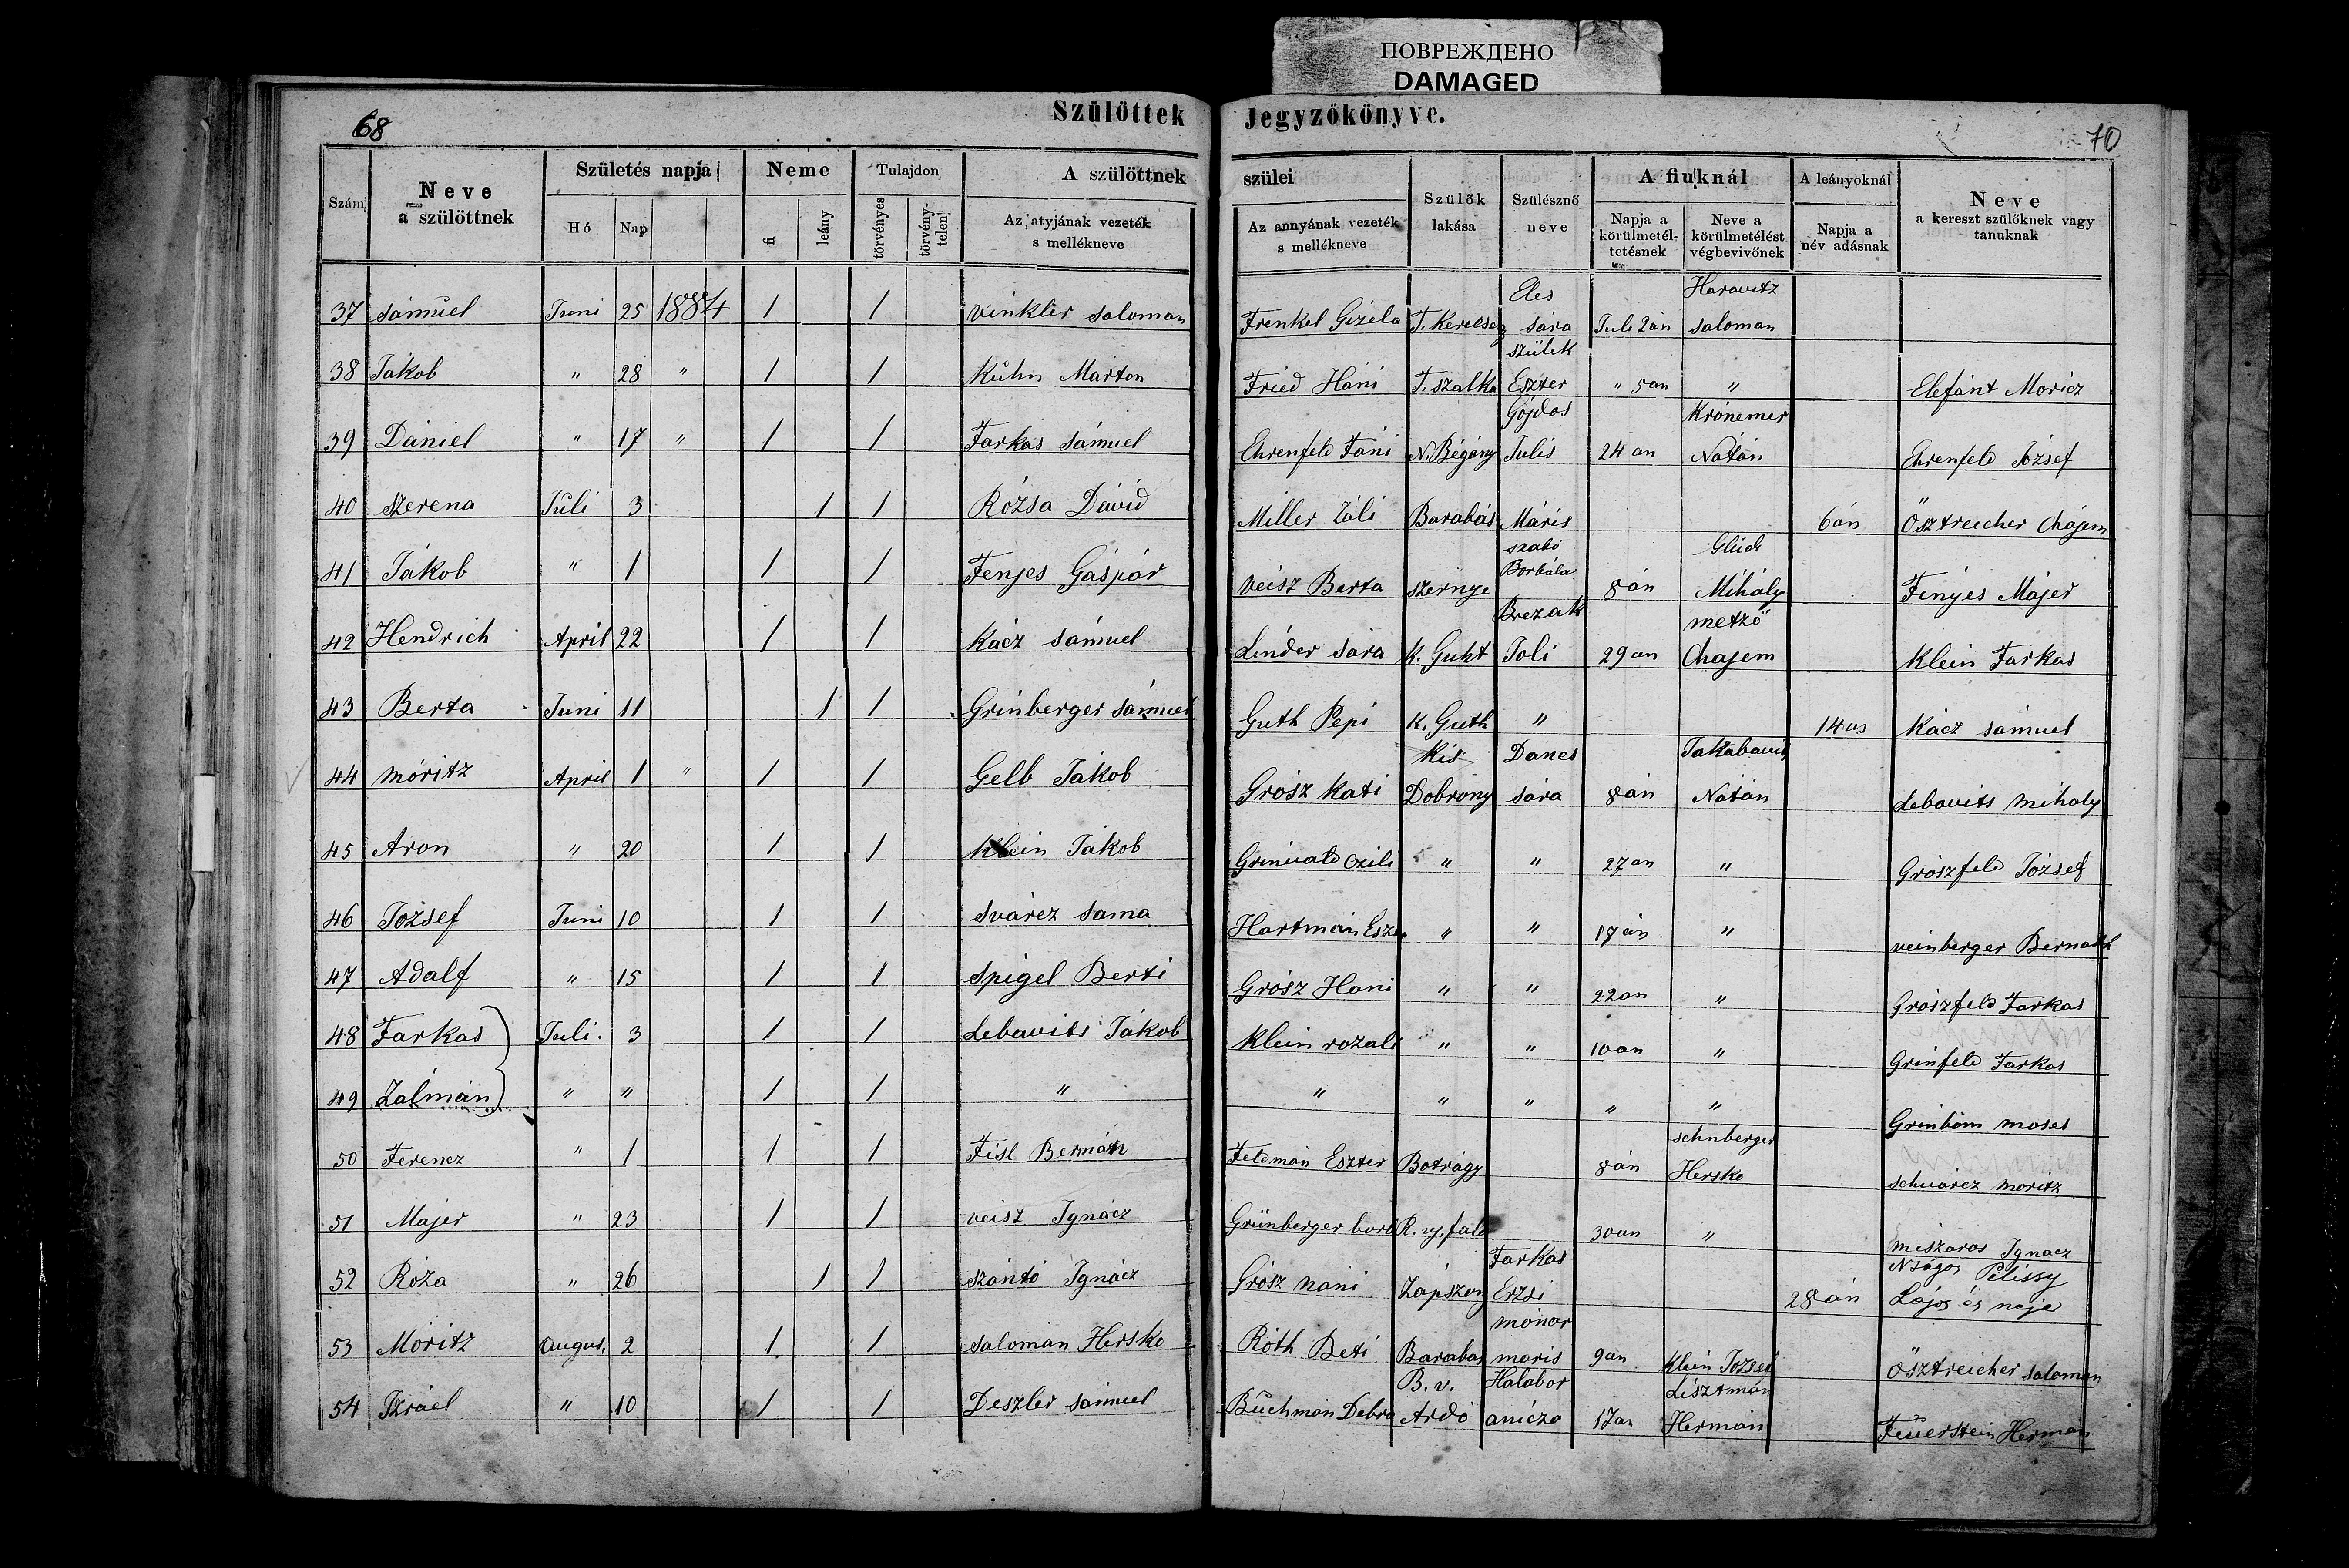 ПОВРЕЖДЕНО
DAMAGED
68
Szülöttek Jegyzőkönyve.
70
Szám
Neve a szülöttnek
Születés napja
Hó
Nap
Neme
fi
leány
Tulajdon
törvényes
törvény-telen
A szülöttnek szülei
Az atyjának vezeték s mellékneve
Az annyának vezeték s mellékneve
Szülők lakása
Szülésznő neve
A fiuknál
Napja a körülmetél-tetésnek
Neve a körülmetélést végbevivőnek
A leányoknál
Napja a név adásnak
Neve a kereszt szülőknek vagy tanuknak
37 Sámuel Juni 25 1884 1 1 Vinkler Saloman Frenkel Gizela T. Kerecseny Eles Sára Juli 2án Haravitz Saloman
38 Jákob " 28 " 1 1 Kuhn Márton Fried Háni T. szalka szülek Eszter " 5an " Elefánt Moricz
39 Dániel " 17 " 1 1 Farkas Sámuel Ehrenfeld Fáni N. Bégány Gójdos Julis 24 an Krónemer Nátán Ehrenfeld József
40 Szerena Juli 3 1 1 Rózsa Dávid Miller Záli Barabás Máris 6án Ösztreicher Chájem
41 Jákob " 1 1 1 Fenjes Gáspár Veisz Berta szernye szabó Borbála 8án Glück Miháhy Fényes Májer
42 Hendrich April 22 1 1 Kácz Sámuel Linder Sára K. Guht Brezak Joli 29an metző Chajem Klein Farkas
43 Berta Juni 11 1 1 Grinberger Sámuel Guth Pepi K. Guth " 14as Kácz Sámuel
44 Móritz April 1 " 1 1 Gelb Jákob Grósz Kati Kis Dobrony Danes Sára 8án Jakabavits Nátán Lebavits Mihály
45 Aron " 20 1 1 Klein Jákob Grinvald Czili " " 27an " Grószfeld József
46 József Juni 10 1 1 Svárcz Sama Hartmán Esz " " 17án " Veinberger Bernath
47 Adalf " 15 1 1 Spigel Berti Grósz Hani " " 22an " Grószfeld Farkas
48 Farkas Juli. 3 1 1 Lebavits Jákob Klein rozali " " 10an " Grinfeld Farkas
49 Zálmán " " 1 1 " " " " " " Grinbóm moses
50 Ferencz " 1 1 1 Fisl Bernáth Feldmán Eszter Botrágy 8án schnberger Hersko Schvárcz móritz
51 Májer " 23 1 1 Veisz Ignácz Grünberger borb R. uj. falu 30an " mészáros Ignacz
52 Roza " 26 1 1 szántó Ignácz Grósz náni Zápszony Farkas Erzsi 28án Pelissy Lajos és neje
53 Móritz Augus. 2 1 1 Saloman Hersko Róth Beti Barabás mónar maris 9an Klein József Ösztreicher Saloman
54 Izráel " 10 1 1 Deszler Sámuel Buchman Debra B. v. Ardó Halabor anicza 17an Lisztmán Hermán Feuerstein Hermán